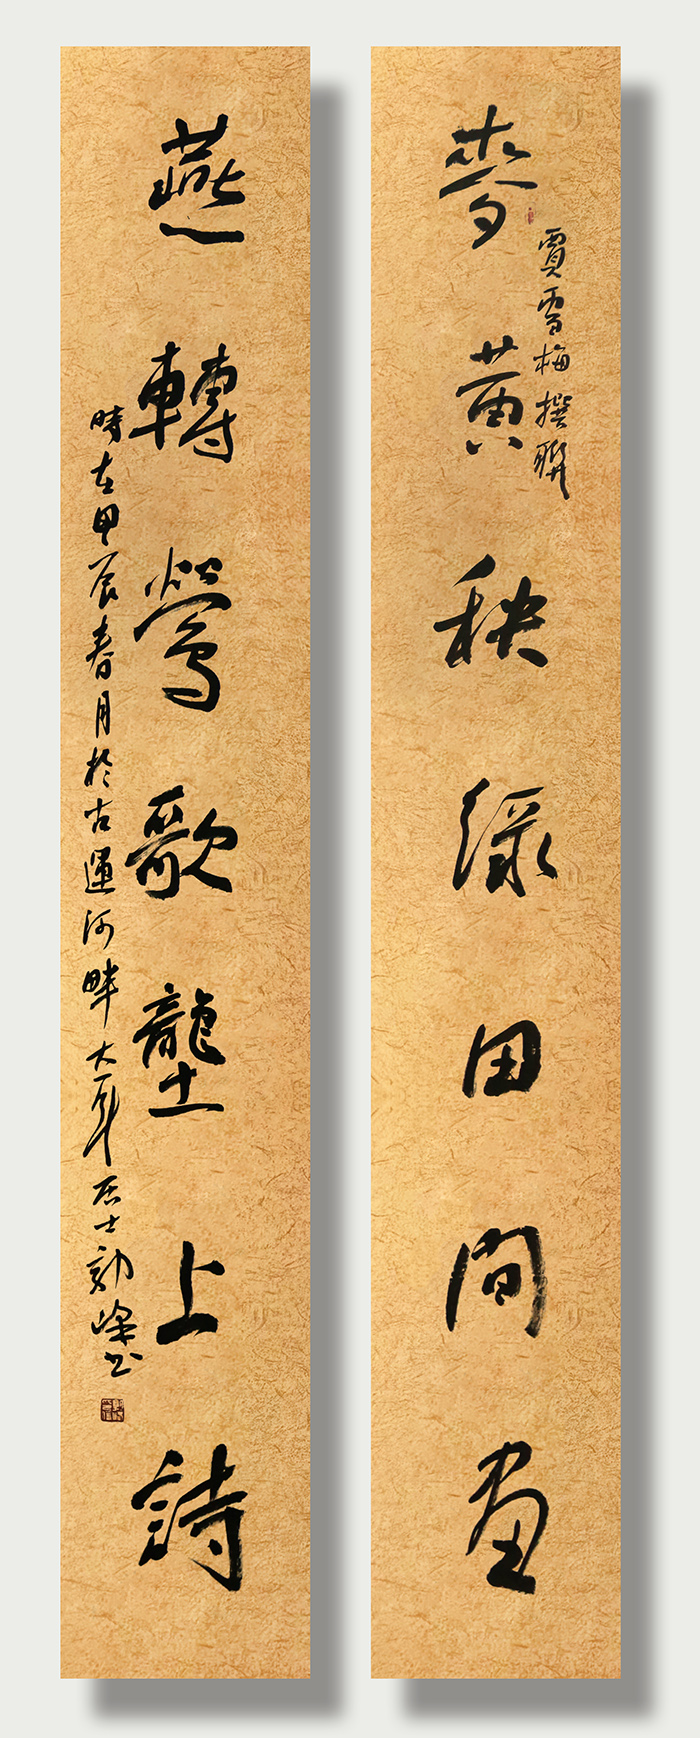 麥黃秧綠田間畫
賈雪梅撰聯
燕轉鶯歌壟上詩
時在甲辰春月於古運河畔大夏居士勁峰書